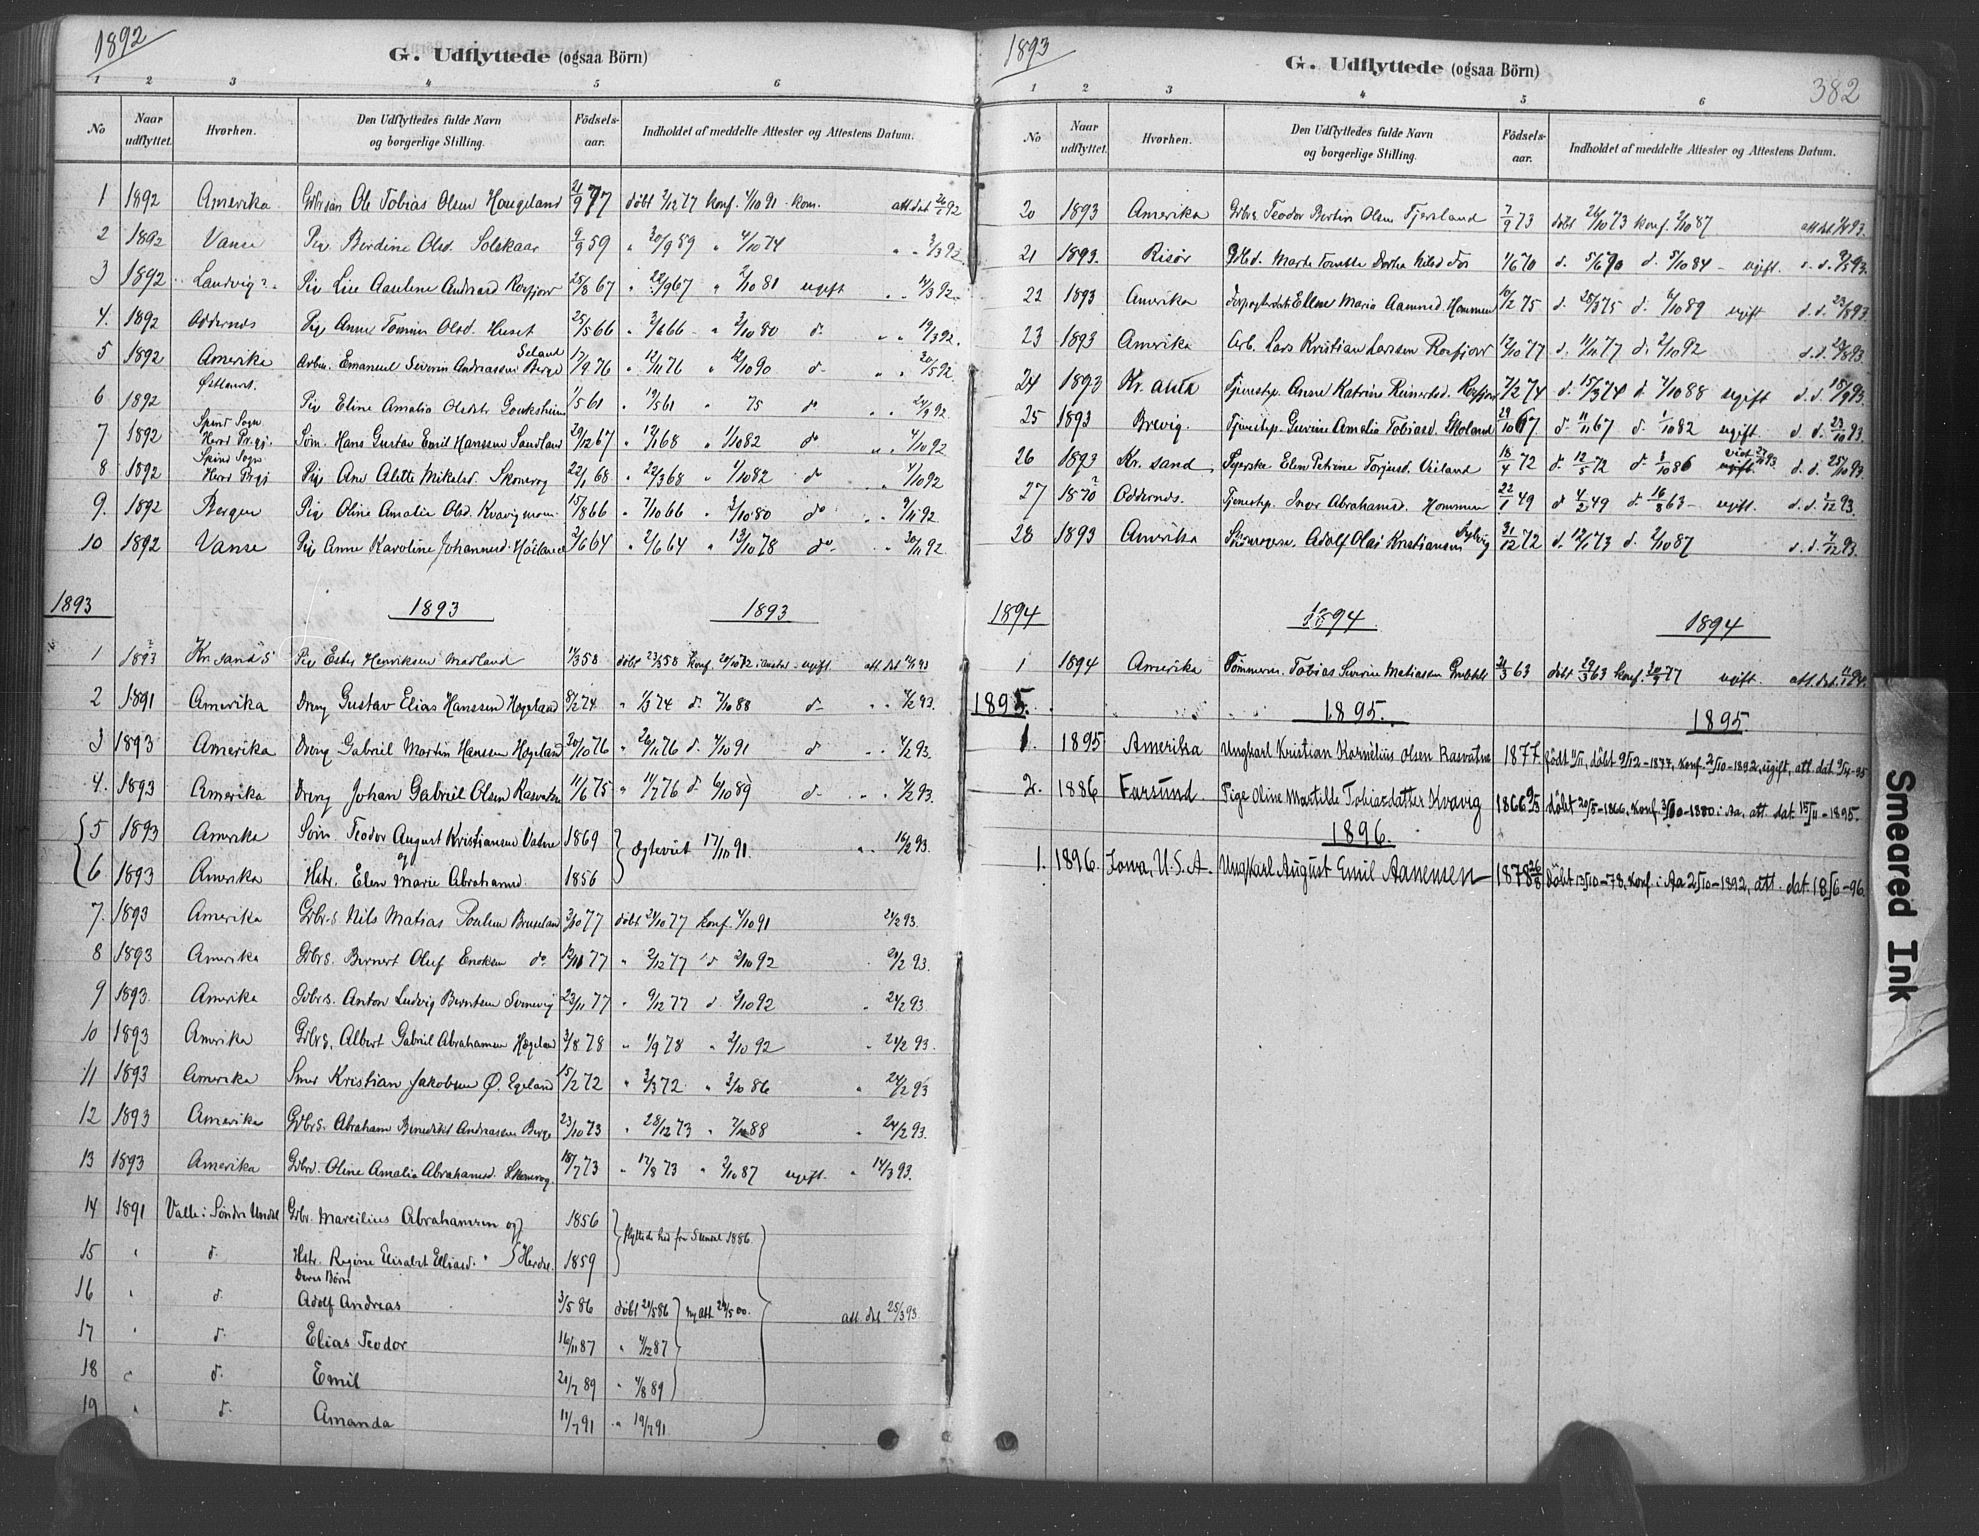 1892
G. Udflyttede (ogsaa Börn)
1 2 3 4 5 6
No Naar udflyttet. Hvorhen. Den Udflyttedes fulde Navn og borgerlige Stilling. Födsels-aar. Indholdet af meddelte Attester og Attestens Datum.
1 1892 Amerika Ole Tobias Olsen Haugeland 21/9 77 döbt 2/12 77 konf. 4/10 91 kom. att. dat. 92
2 1892 Vanse Pig Berdine Olsd. Solskaar 9/9 59 " 30/9 59 " 4/10 74 " " 3/3 92
3 1892 Landvig Pig Line Aauline Andreasd Rosfjord 25/8 67 " 22/9 67 " 2/10 81 ugift " " 14/3 92
4. 1892 Oddernes Pige Anne Tomine Olsd. Huset 25/5 66 " 3/6 66 " 3/10 80 do " " 19/3 92.
5 1892 Amerika Arbm. Emanuel Severin Andreassen Berge Seland 17/9 76 " 12/11 76 " 12/10 90 do " " 20/5 92
6 1892 Pig Eline Amalia Olsdtr 1/5 61 " 19/5 61 " 75 do " " 24/9 92.
7 1892 Spind Sogn Herred Prgj. Søm. Hans Gustav Emil Hanssen Sandland 29/12 67 " 12/1 68 " 1/10 82 do " " 4/10 92
8 1892 Spind Sogn Herred Prgj Pig Ane Alette Mikelsd. Skonevog 22/1 68 " 22/3 68 " 1/10 82 do 4/10 92
9. 1892 Bergen Pig Oline Amalie Olsd. Kvavigmoen 15/8 66 " 7/10 66 " 3/10 80 do " " 9/11 92
10 1892 Vanse Pig Anne Karoline Johannesd. Höiland 2/6 64 " 2/6 64 " 13/10 78 do " " 30/11 92
1893 1893 1893
1 1893 Kr.sand S Pig Ester Henriksen Madland 11/3 58 döbt 23/5 58 Konf. 20/10 72 ugift att. dat. 93
2 1891 Amerika Dreng Gustav Elias Hanssen Høgeland 8/2 74 " 1/3 74 d. 7/10 88 d " " 4/2 93.
3 1893 Amerika Dreng Gabriel Martin Hanssen Høgeland 20/10 76 " 26/11 76 d. 4/10 91 d " " 4/2 93.
4. 1893 Amerika Dreng Johan Gabriel Olsen Rasvatne 11/6 75 " 11/7 76 d 6/10 89 d " " 4/2 93.
5 1893 Amerika Søm. Teodor August Kristiansen Vatne og 1869 Ægteviet 17/11 91. " " 16/2 93.
6 1893 Amerika Hstr. Elen Marie Abrahamsd. 1856
7. 1893 Amerika Grbr.s Nils Matias Poulsen Bruseland 3/10 77 döbt 21/10 77 konf. 4/10 91 24/2 93.
8 1893 Amerika Grbr.s. Bernert Oluf Enoksen do 12/11 77 " 2/12 77 d 2/10 92 24/2 93.
9 1893. Amerika Grbr.s. Anton Ludvig Berntsen 23/11 77 " 9/12 77 d 2/10 92 " 24/2 93.
10 1893 Amerika Grbr.s. Albert Gabriel Abrahamsen Høgeland 3/8 78 " 1/9 78 " 2/10 92 " 24/2 93.
11 1893 Amerika Smed Kristian Jakobsen Ø. Egeland 15/2 72 " 3/3 72 " 3/10 86 " 24/2 93
12 1893 Amerika Grbr.S. Abraham Benedikt Andreassen Berge 23/10 73 " 28/12 73 " 7/10 88 " 24/2 93.
13 1893 Amerika Grbrd. Oline Amalia Abrahamsd. Skonevog. 18/7 73 " 17/8 73 " 2/10 87 ugift. " 14/3 93.
14 1891 Valle i Söndre Undal Grbr. Marcilius Abrahamsen og 1856 flyttede hid fra 1886.
15 " d. Hstr. Regine Elisabet Eliasd. " Herdal. 1859
Deres Børn
16 " d. Adolf Andreas 3/5 86 döbt 21/5 86 ny att. 24/5 00. att. dat 25/3 93
17 " d. Elias Teodor 16/11 87 " 4/12 87
18 " d. Emil 21/7 89 " 4/8 89
19 " d. Amanda 11/7 91 " 19/7 91
1893
G. Udflyttede (ogsaa Börn)
382
1 2 3 4 5 6
No Naar udflyttet. Hvorhen. Den Udflyttedes fulde Navn og borgerlige Stilling. Födsels-aar. Indholdet af meddelte Attester og Attestens Datum.
20 1893 Amerika Grbrs. Teodor Bertin Olsen Fjersland 7/9 73 döbt 26/10 73 konf. 2/10 87 att. dat. 93.
21 1893. Risör Marte Tomine Dortea Nilsd Fos 1/6 70 d. 5/6 70 d. 5/10 84 - ugift. d. d. 9/5 93.
22 1893 Amerika Ellen Maria Aamundsd. Hommen 10/2 75 d. 28/3 75 d. 6/10 89 ugift d. d. 23/8 93
23 1893 Amerika Arb. Lars Kristian Larssen Rosfjord 12/10 77 d. 11/11 77 d. 2/10 92 d. d. 93.
24 1893 Kr.ania Tjenestep. Anne Katrine Reinertsd. Rosfjord 7/2 74 d. 15/3 74 d. 7/10 88 ugift d. d. 18/9 93.
25 1893 Brevig. Tjenestep. Gurine Amalia Tobiasd. Skoland 29/10 67 d. 11/11 67 d. 1/10 82 ugift. d. d. 23/10 93.
26 1893 Kr.sand. Syerske Elen Petrine Torjusd. Veiland 18/4 72 d. 12/5 72 d. 3/10 86 ugift. d. d. 25/10 93
27 1870? Oddernes. Tjenestep. Inger Abrahamsd. Hommen 22/1 49 d 4/2 49 d. 16/8 63 - ugift. d. d. 1/12 93.
28 1893 Amerika Adolf Olai Kristiansen 31/12 72 d. 12/1 73 d. 2/10 87 d. d. 7/12 93.
1894 1894 1894
1 1894 Amerika Tömmerm. Tobias Severin Matiassen 21/3 63 döbt 29/3 63 konf. 77 ugift. att. dat. 94.
1895. 1895. 1895.
1. 1895 Amerika Ungkarl Kristian Kornelius Olsen Rasvatne 1877. født 11/11, döbt 9/12-1877, konf. 2/10-1892, ugift, att. dat. 9/4-95
2. 1886 Farsund. Pige Oline Martilde Tobiasdatter Kvavig 1866 9/5 döbt 20/5-1866, konf. 3/10-1880 i Aa, att. dat. 15/11-1895.
1896.
1. 1896. Iowa, U.S.A. Ungkarl August Emil Aanensen 1878 26/8 Døbt 13/10-78, konf. i Aa 2/10-1892, att. dat. 18/6-96.
Smeared Ink